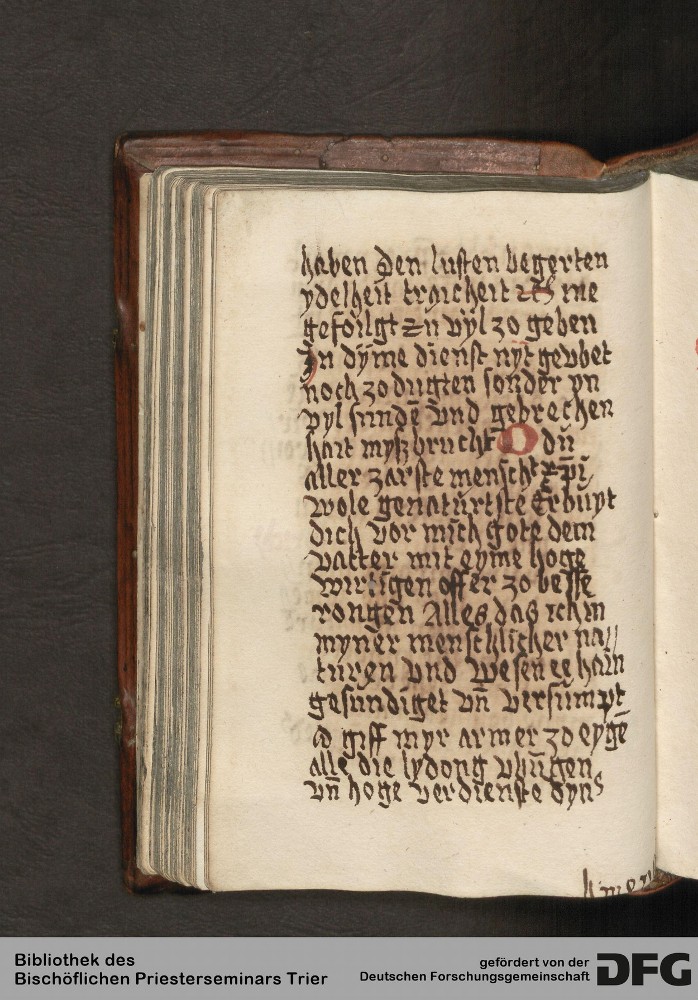 haben den lusten begerten
ydelheit traicheit me
gefoilgt zu vyl zo geben
In dyme dienst nyt geubet
noch zo dugten sonder yn
vyl sundē vnd gebrechen
hait myßbrucht O dū
aller zarste menscht xp̄i
wole genaturtste Erbuyt
dich vor mich gote dem
vatter mit eyme hoge
wirdigen offer zo besse
rongen Alles das ich in
myner menschlicher na//
turen vnd wesen ee hain
gesundiget vn̄ versumpt
giff myr armer zo eygē
alle die lydong vbūgen
vn̄ hoge verdienste dyns
Bibliothek des
Bischöflichen Priesterseminars Trier
gefördert von der
Deutschen Forschungsgemeinschaft
DFG